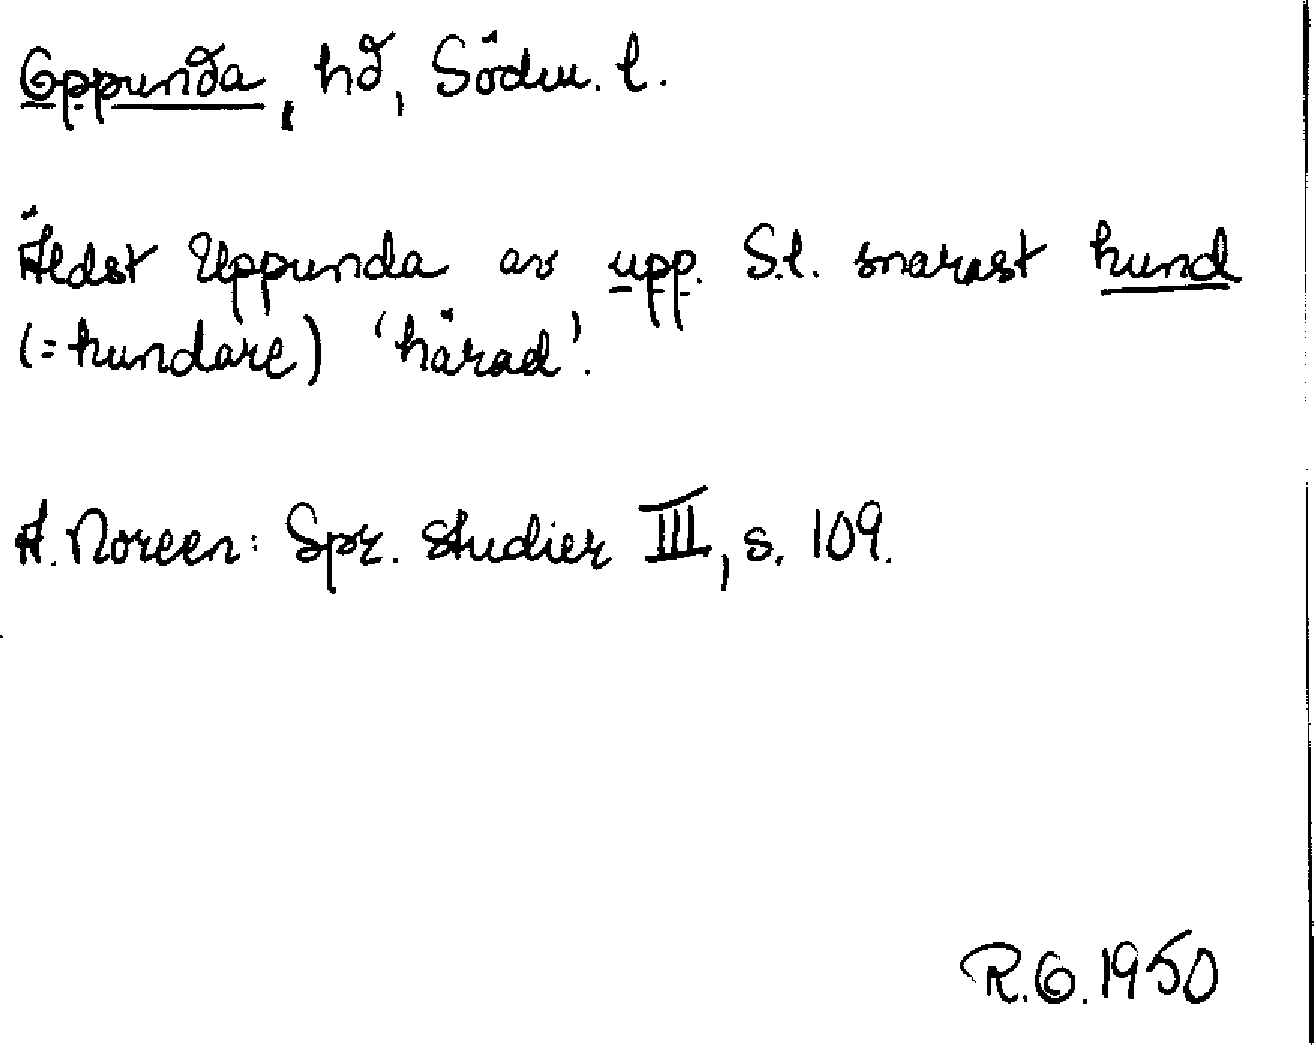 Oppunda, hd, Södm. l.
Äldst Uppunda av upp. S.l. snarast hund
(=hundare) 'härad'.
A. Noreen: Spr. studier III, s. 109.
R.O. 1950